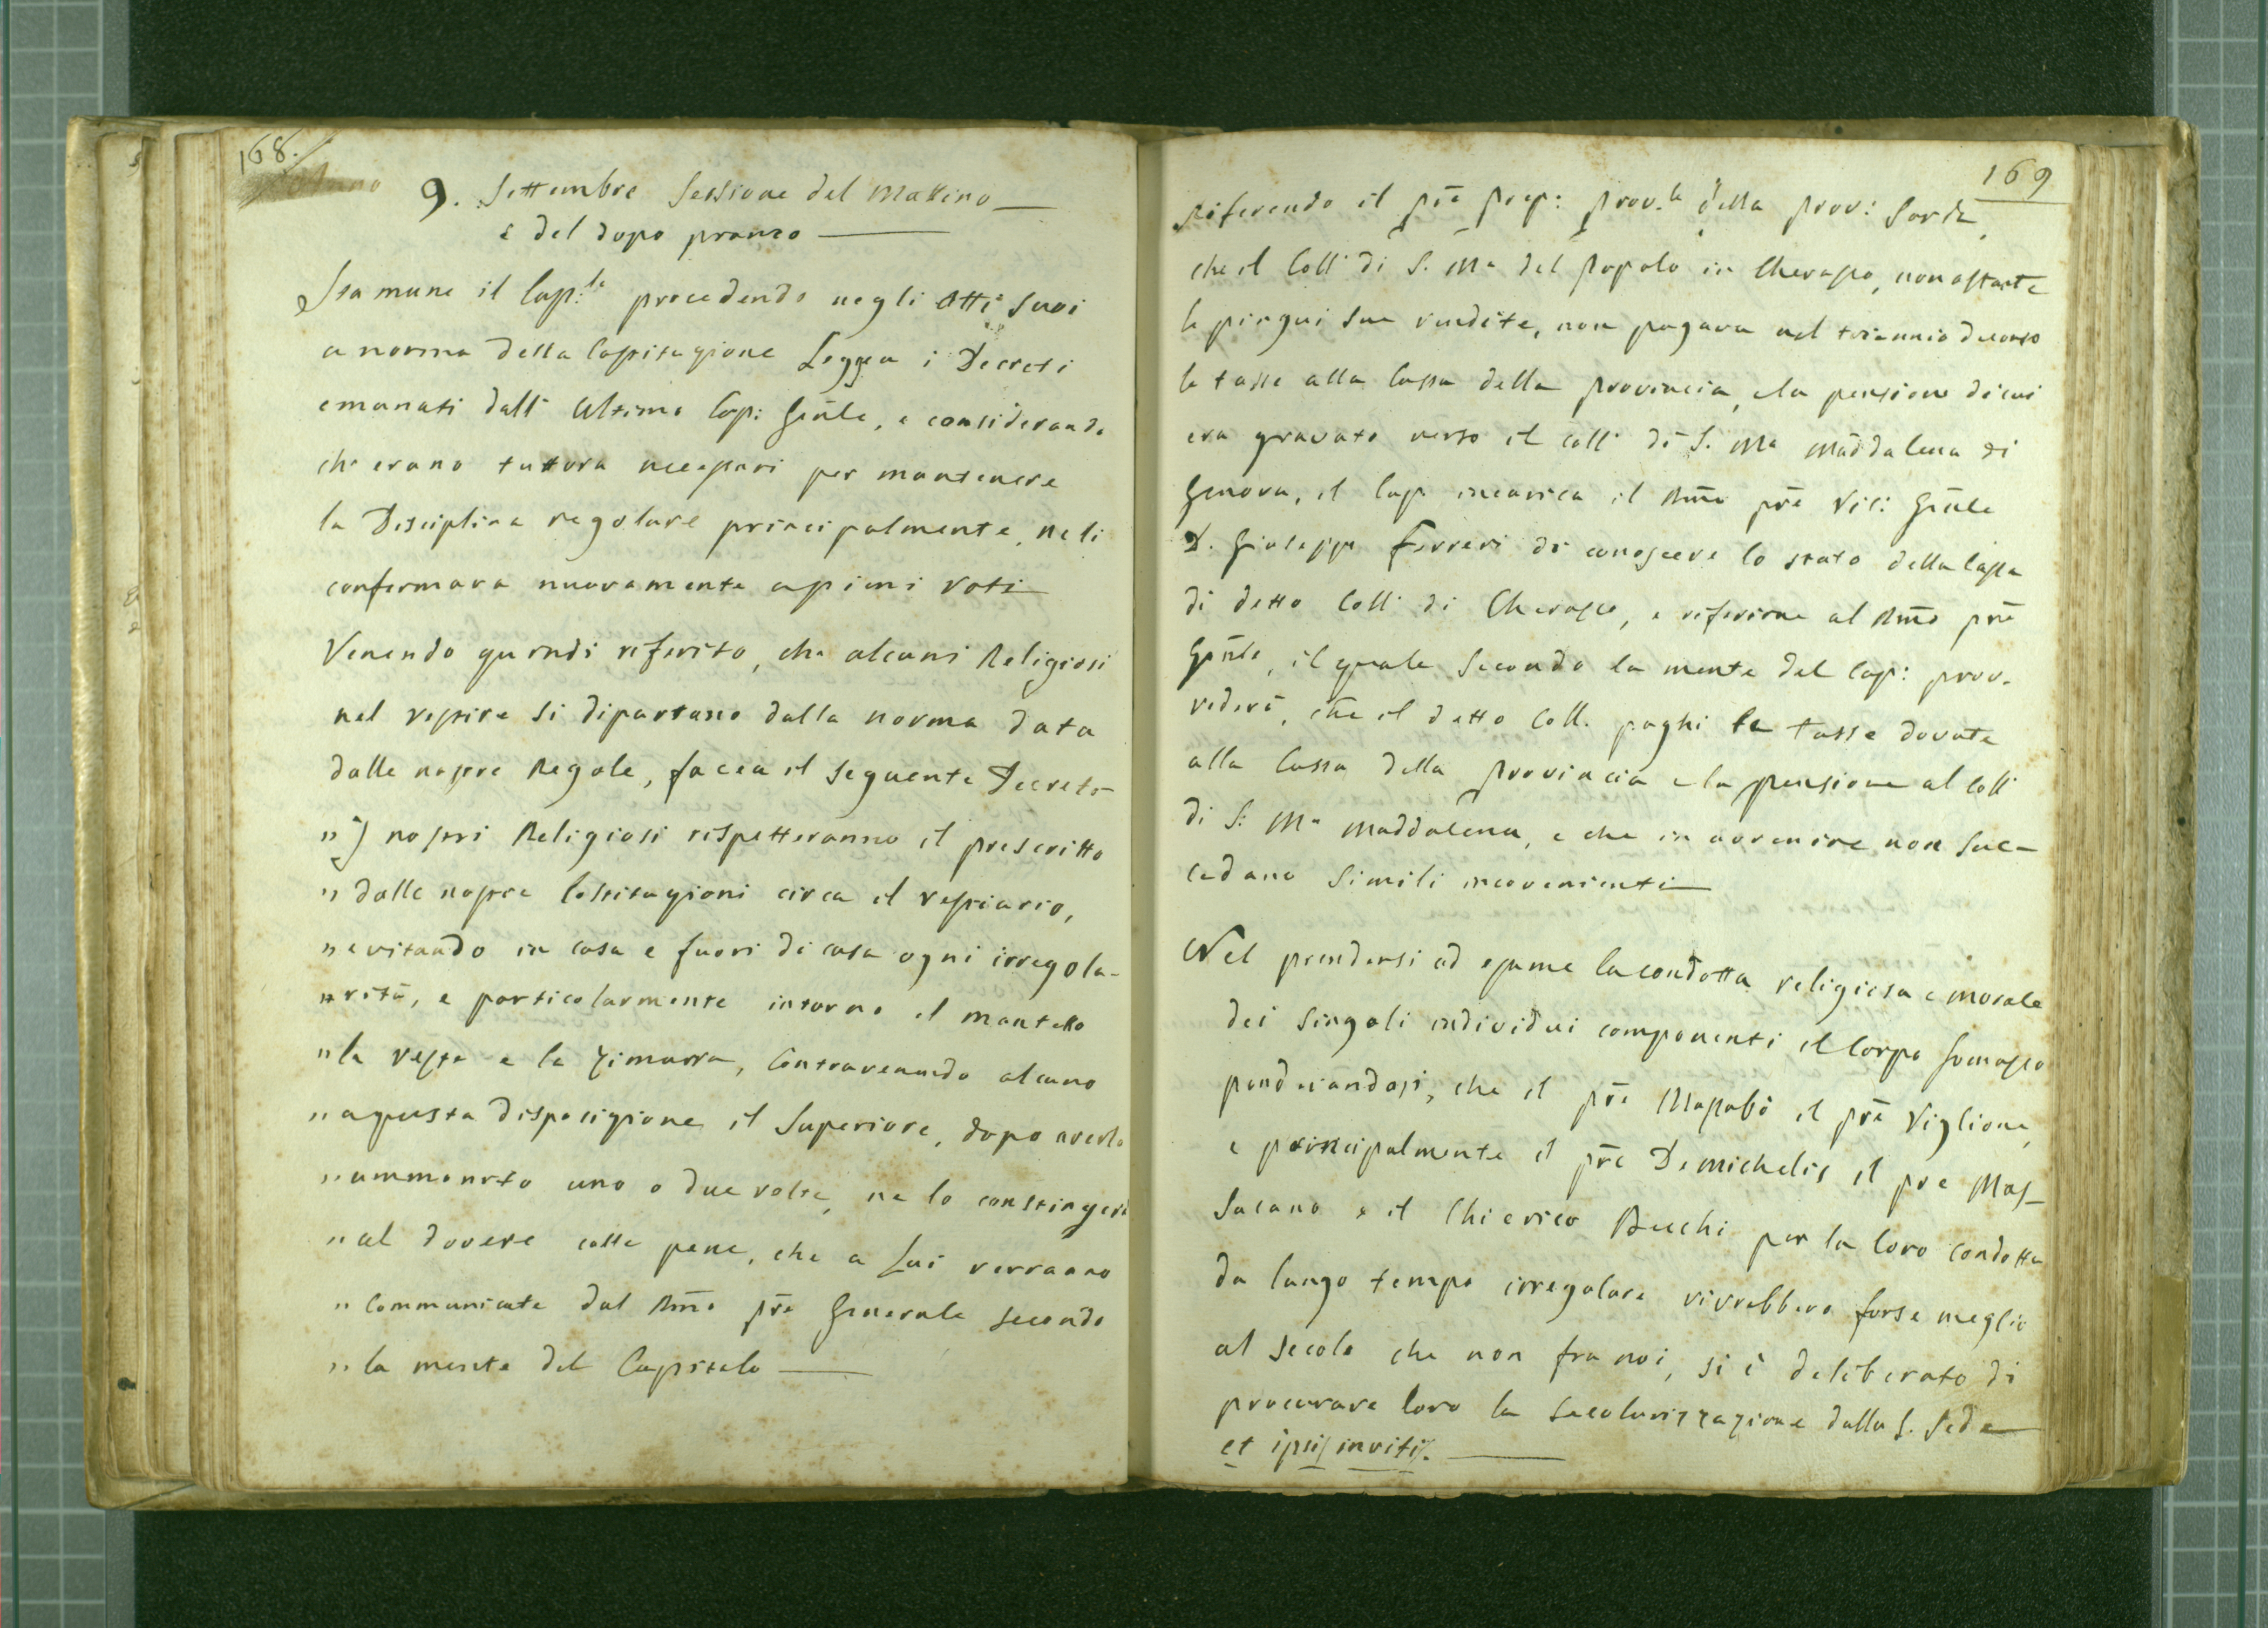 168.
9. Settembre Sessione del Mattino
e del dopo pranzo
Stamane il Cap:lo procedendo negli Atti suoi
a norma della Costituzione Leggea i Decreti
emanati dall' Ultimo Cap: Gñle, e considerando
che erano tuttora necessari per mantenere
la Disciplina regolare principalmente, ne li
confermava nuovamente a pieni voti
Venendo quindi riferito, che alcuni Religiosi
nel vestire si dipartano dalla norma data
dalle nostre Regole, facea il seguente Decreto
" I nostri Religiosi rispetteranno il prescritto
" dalle nostre Costituzioni circa il vestiario,
" evitando in casa e fuori di casa ogni irregola-
" rità, e particolarmente intorno il mantello
" la veste e la zimarra, Contravenendo alcuno
" a questa disposizione il Superiore, dopo averlo
" ammonito una o due volte, ne lo constringerà
" al dovere colle pene, che a Lui verranno
" Communicate dal Rm̃o pr̃e Generale secondo
" la mente del Capitolo
169
Riferendo il pr̃e prep: prov.le della prov: Sarda,
che il Coll: di S. Ma del Popolo in Cherasco, nonostante
le pingui sue rendite, non pagava nel triennio decorso
le tasse alla Cassa della provincia, e la pensione di cui
era gravato verso il coll: di S. Ma Maddalena di
Genova, il Cap. incarica il Rm̃o pr̃e Vic: Gñle
D. Giuseppe Ferreri di conoscere lo stato della Cassa
di detto Coll: di Cherasco, e riferirne al Rm̃o pr̃e
Gñle, il quale secondo la mente del Cap: prov-
vederà, che il detto Coll. paghi le tasse dovute
alla Cassa della Provincia e la pensione al Coll:
di S: Ma Maddalena, e che in avvenire non suc-
cedano simili inconvenienti
Nel prendersi ad esame la condotta religiosa e morale
dei singoli individui componenti il Corpo Somasco
ponderandosi, che il pr̃e Massabò il pr̃e Viglione,
e principalmente il pr̃e Demichelis il pre Mas-
sacano e il Chierico Bucchi per la loro condotta
da lungo tempo irregolare vivrebbero forse meglio
al secolo che non fra noi, si è deliberato di
procurare loro la secolarizzazione dalla S. Sede
et ipsis invitis.